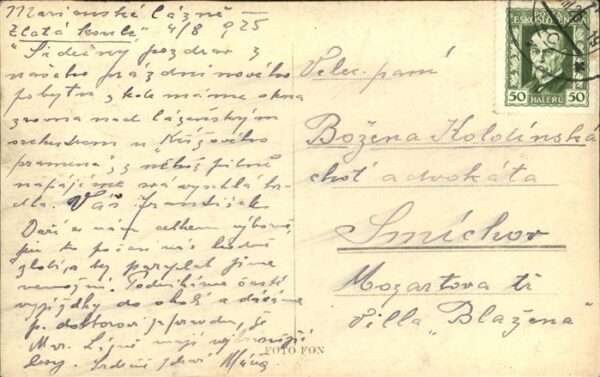 Marianské lázně —
Zlatá koule 4/8 1925
"Srdečný pozdrav z
našeho prázdninového
pobytu, kde máme okna
zrovna nad lázeňským
orchestrem u Křížového
pramene, z něhož pilně
napájíme svá vyschlá hr-
dla. Váš Frantíšek
Daří se nám celkem výborně,
jen to počasí nás hodně
zlobí, a bez
nemojem. Podnikáme časté
vyjížďky do okolí a dáváme
p. doktorovi za pravdu, že
Mar. Lázně mají
Srdečně zdraví Máňa
Velec. paní
Božena Koldínská
choť advokáta
Smíchov
Mozartova tř
Villa „Blažena"
ČESKOSLOVENSKO
50 HALÉŘŮ 50
FOTO FON